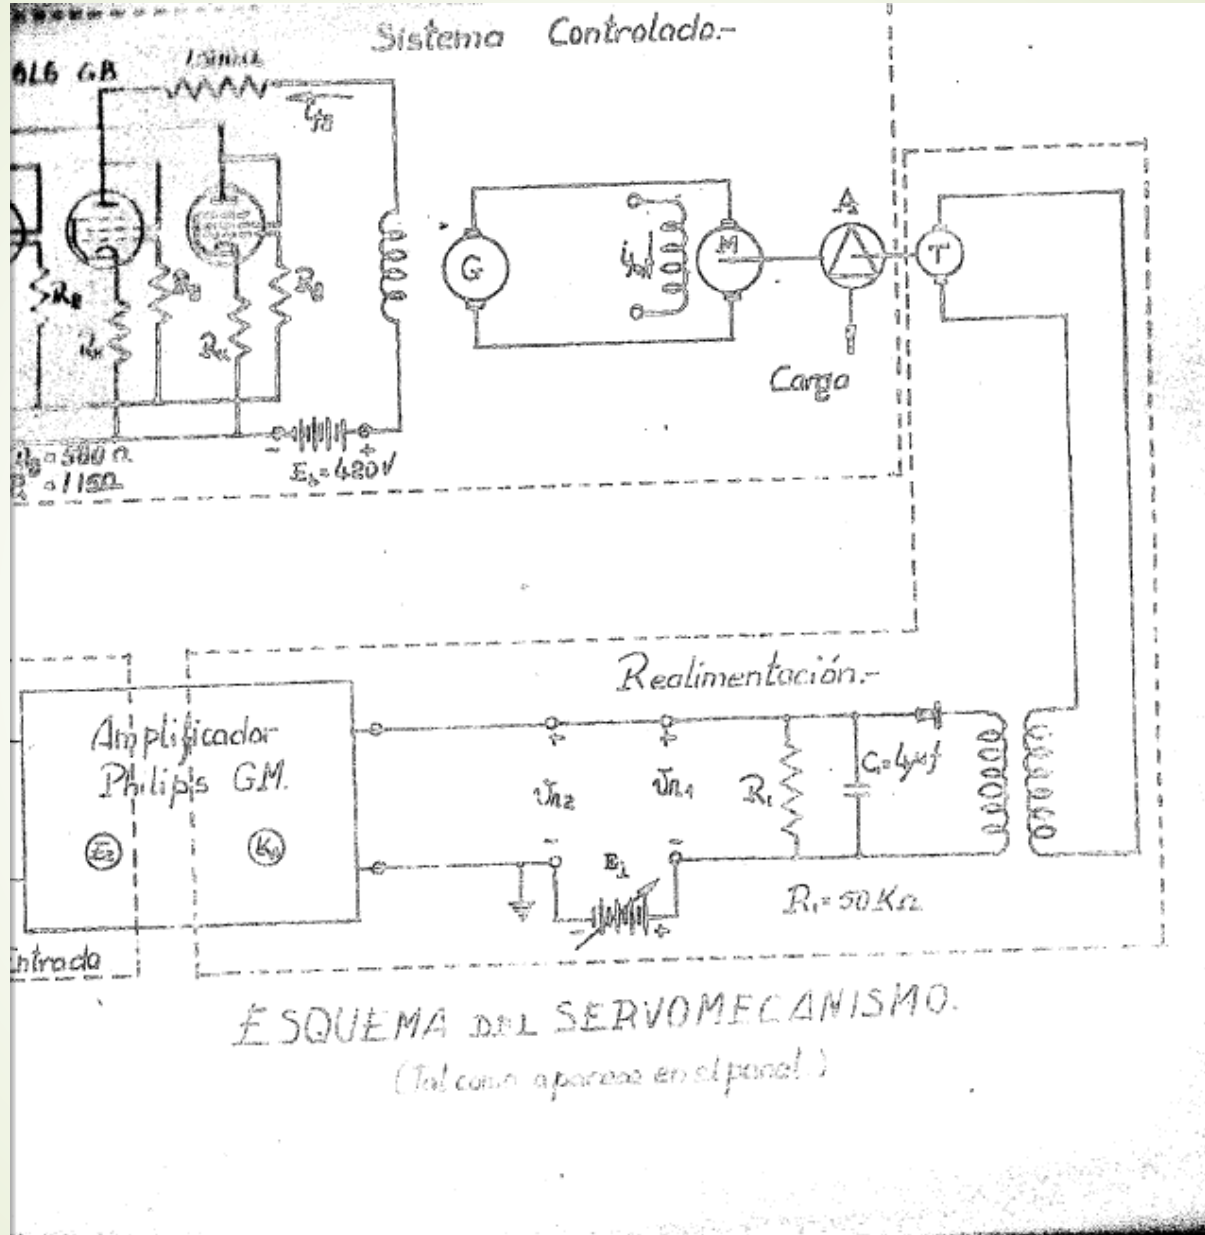 Sistema Controlado.-
6L6 GB
A
G
M
T
Rg
Rk
Rg
Rk
Rg
Carga
E_b = 420V
= 500 Ω
= 1150
Realimentación.-
Amplificador
Philips G.M.
E2
Vn2
Vn1
R1
C1=4μf
R1=50KΩ
Entrada
ESQUEMA DEL SERVOMECANISMO.
(Tal como aparece en el panel.)